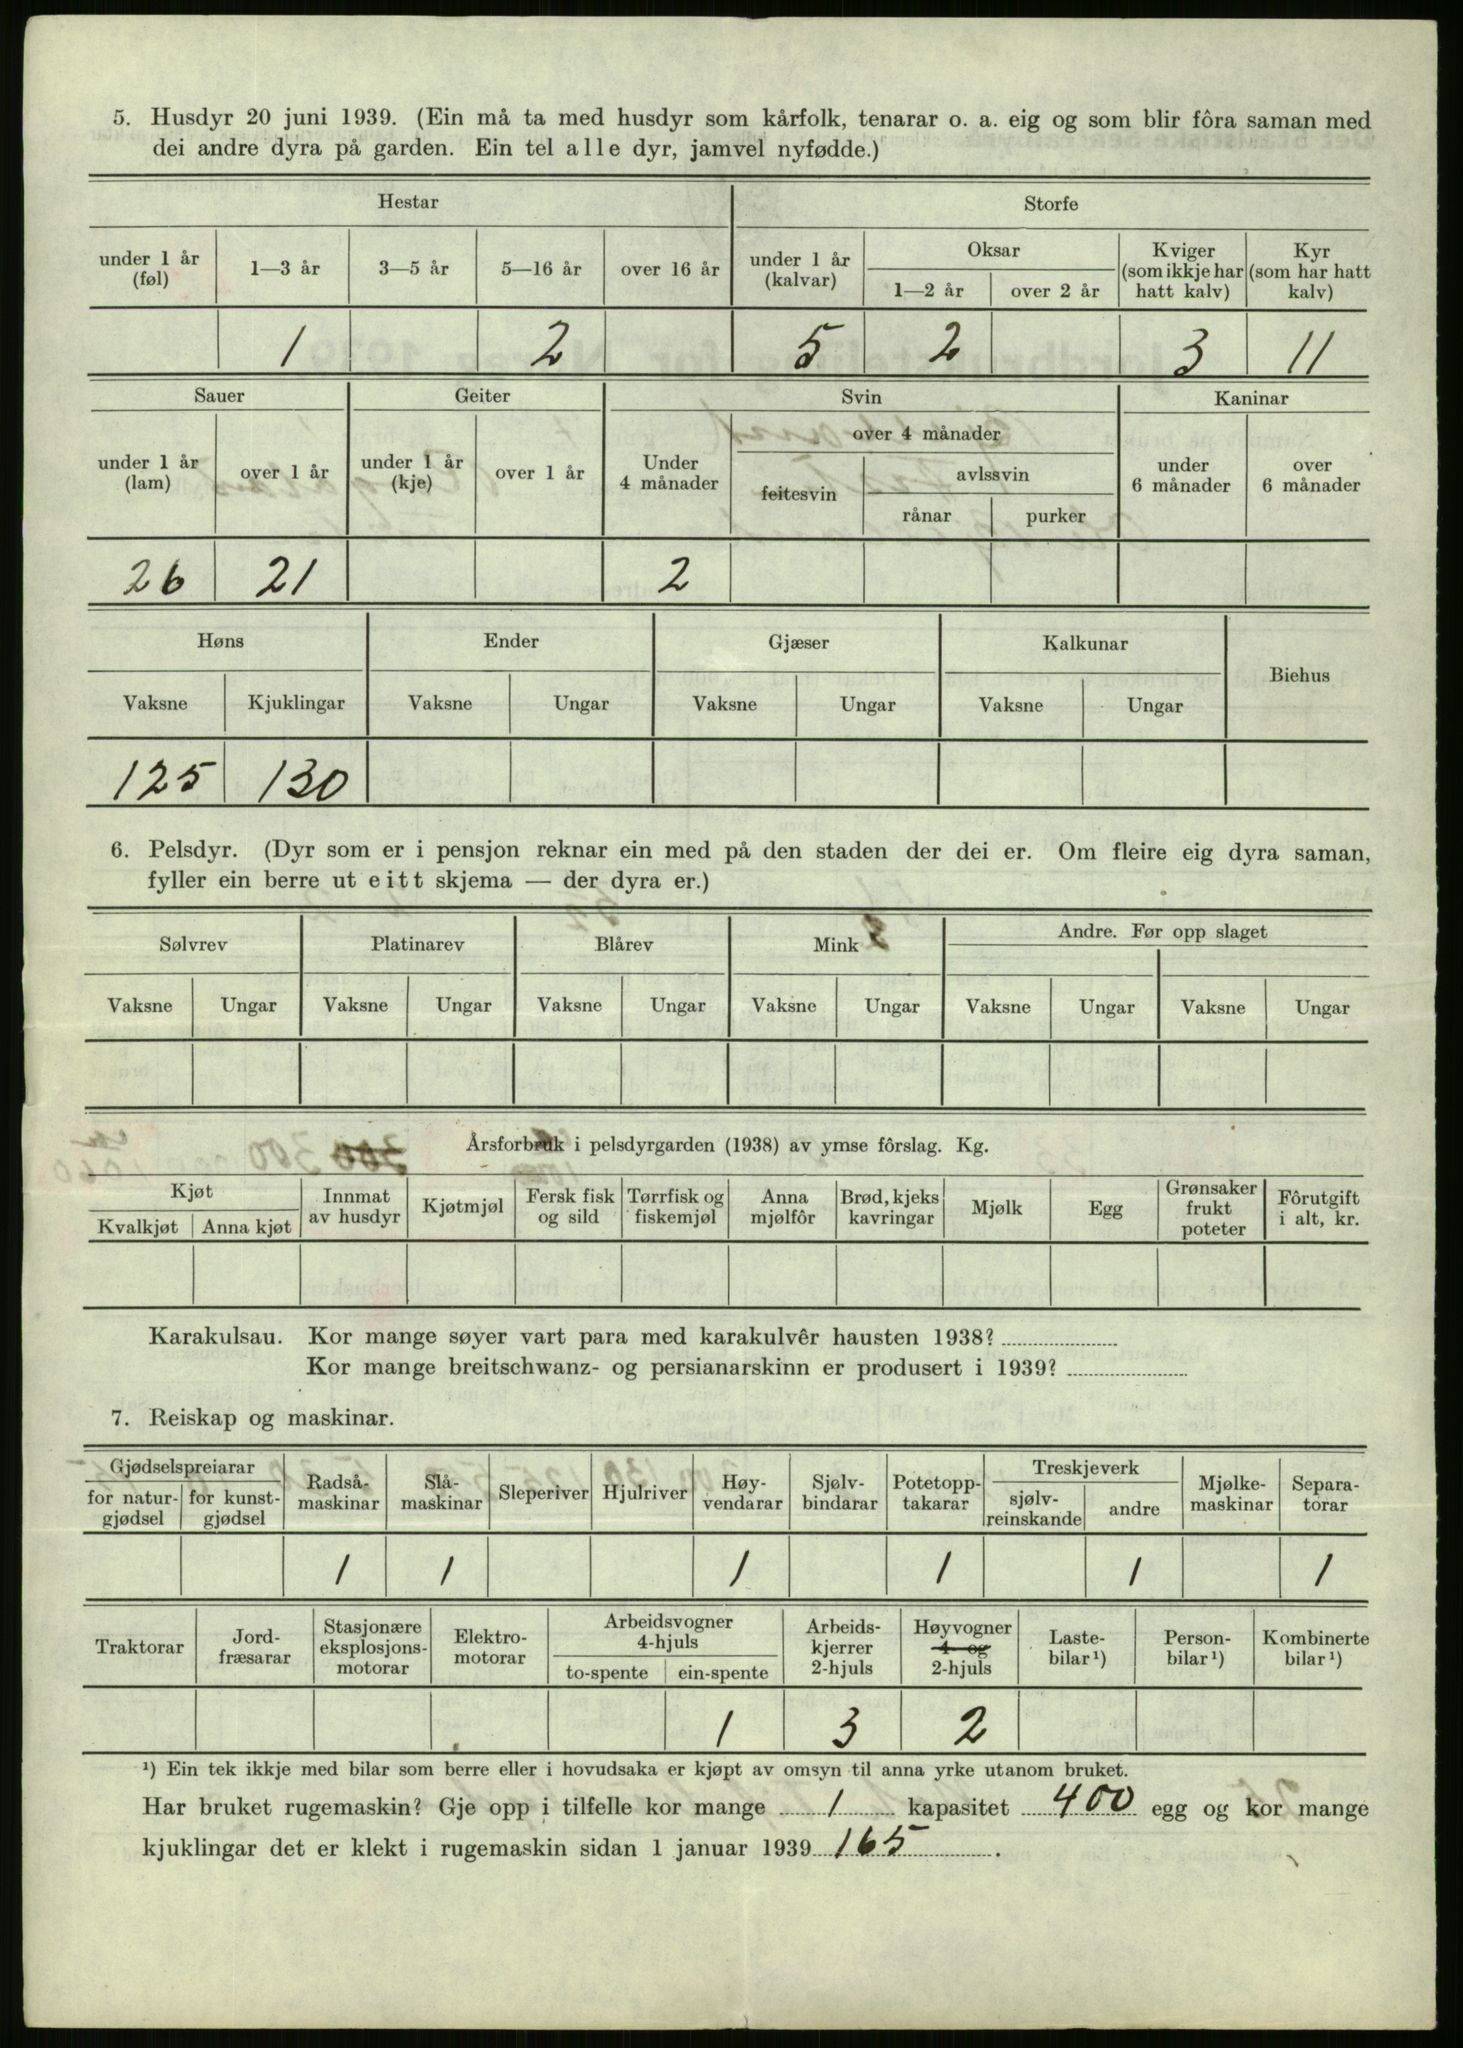 5. Husdyr 20 juni 1939. (Ein må ta med husdyr som kårfolk, tenarar o. a. eig og som blir fôra saman med
dei andre dyra på garden. Ein tel alle dyr, jamvel nyfødde.)
Hestar Storfe
under 1 år (føl) 1—3 år 3—5 år 5—16 år over 16 år under 1 år (kalvar) Oksar 1—2 år over 2 år Kviger (som ikkje har hatt kalv) Kyr (som har hatt kalv)
1 2 5 2 3 11
Sauer Geiter Svin Kaninar
under 1 år (lam) over 1 år under 1 år (kje) over 1 år Under 4 månader over 4 månader feitesvin avlssvin rånar purker under 6 månader over 6 månader
26 21 2
Høns Ender Gjæser Kalkunar Biehus
Vaksne Kjuklingar Vaksne Ungar Vaksne Ungar Vaksne Ungar
125 130
6. Pelsdyr. (Dyr som er i pensjon reknar ein med på den staden der dei er. Om fleire eig dyra saman,
fyller ein berre ut eitt skjema — der dyra er.)
Sølvrev Platinarev Blårev Mink Andre. Før opp slaget
Vaksne Ungar Vaksne Ungar Vaksne Ungar Vaksne Ungar Vaksne Ungar Vaksne Ungar
Årsforbruk i pelsdyrgarden (1938) av ymse fôrslag. Kg.
Kjøt Kvalkjøt Anna kjøt Innmat av husdyr Kjøtmjøl Fersk fisk og sild Tørrfisk og fiskemjøl Anna mjølfôr Brød, kjeks kavringar Mjølk Egg Grønsaker frukt poteter Fôrutgift i alt, kr.
Karakulsau. Kor mange søyer vart para med karakulvêr hausten 1938?
Kor mange breitschwanz- og persianarskinn er produsert i 1939?
7. Reiskap og maskinar.
Gjødselspreiarar for natur- gjødsel for kunst- gjødsel Radså- maskinar Slå- maskinar Sleperiver Hjulriver Høy- vendarar Sjølv- bindarar Potetopp- takarar Treskjeverk sjølv- reinskande andre Mjølke- maskinar Separa- torar
1 1 1 1 1 1
Traktorar Jord- fræsarar Stasjonære eksplosjons- motorar Elektro- motorar Arbeidsvogner 4-hjuls to-spente ein-spente Arbeids- kjerrer 2-hjuls Høyvogner 4- og 2-hjuls Laste- bilar¹) Person- bilar¹) Kombinerte bilar¹)
1 3 2
¹) Ein tek ikkje med bilar som berre eller i hovudsaka er kjøpt av omsyn til anna yrke utanom bruket.
Har bruket rugemaskin? Gje opp i tilfelle kor mange 1 kapasitet 400 egg og kor mange
kjuklingar det er klekt i rugemaskin sidan 1 januar 1939 165.